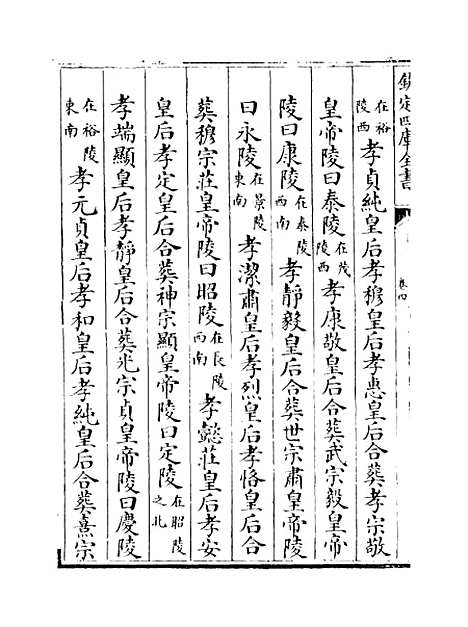 欽定四庫全書
卷四
在裕陵西孝貞純皇后孝穆皇后孝惠皇后合葬孝宗敬
皇帝陵曰泰陵在茂陵西孝康敬皇后合葬武宗毅皇帝
陵曰康陵在泰陵西南孝靜毅皇后合葬世宗肅皇帝陵
曰永陵在景陵東南孝潔肅皇后孝烈皇后孝恪皇后合
葬穆宗莊皇帝陵曰昭陵在長陵西南孝懿莊皇后孝安
皇后孝定皇后合葬神宗顯皇帝陵曰定陵在昭陵之北
孝端顯皇后孝靜皇后合葬光宗貞皇帝陵曰慶陵
在裕陵東南孝元貞皇后孝和皇后孝純皇后合葬熹宗